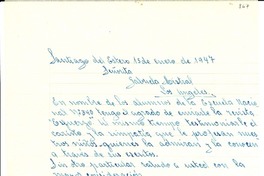 Santiago del Estero 15 de enero de 1947
Señorita
Gabriela Mistral
Los Angeles.
En nombre de los alumnos de la Escuela Nacio
nal Nº 240 tengo el agrado de enviarle la revista
al mismo tiempo testimoniarle el
cariño y la simpatía que le profesan mis
niños quienes la admiran y la conocen
a través de sus escritos.
Sin otro particular saludo a usted con la
mayor consideración